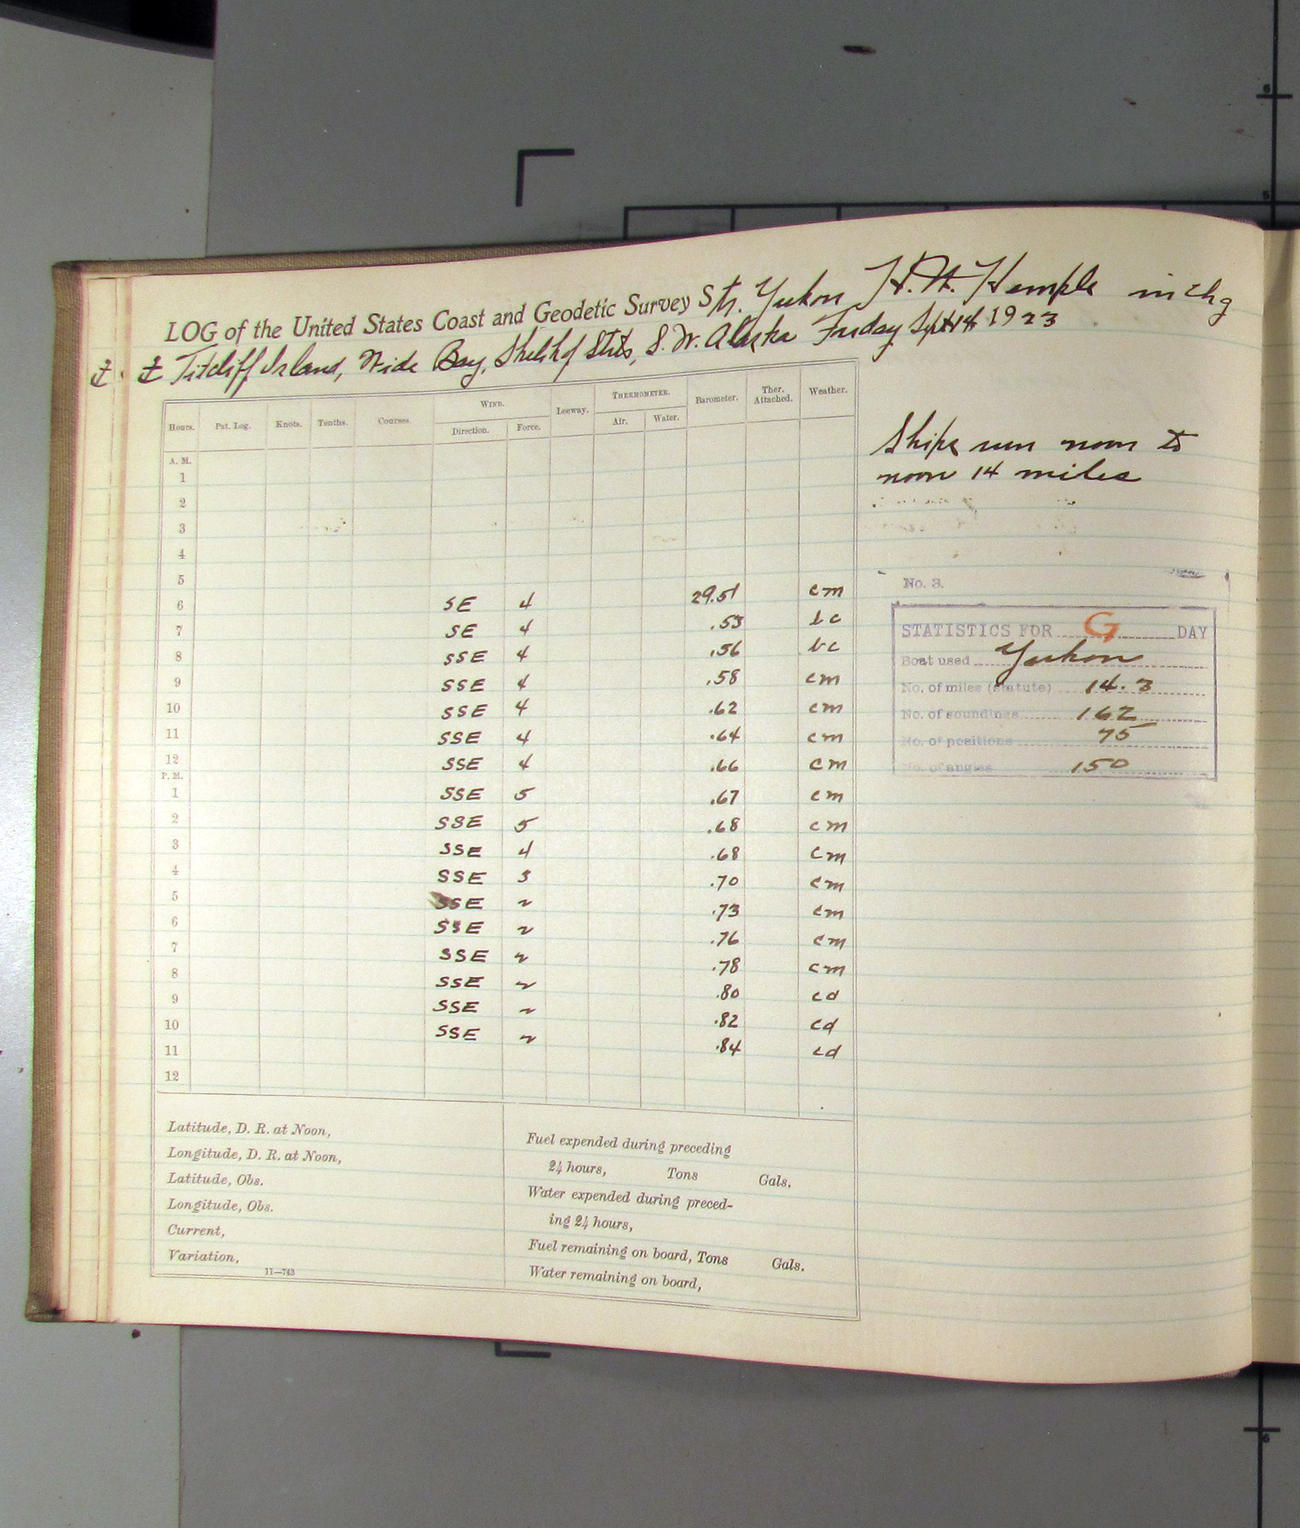 LOG of the United States Coast and Geodetic Survey Str. Yukon H.A. Hemple in chg
Titcliff Island, Wide Bay, Shelikof Strts, S.W. Alaska Friday Sept 14 1923
Hours. Pat. Log. Knots. Tenths. Courses. WIND. Leeway. THERMOMETER. Barometer. Ther. Attached. Weather.
Direction. Force. Air. Water.
A. M.
1
2
3
4
5
6 SE 4 29.51 cm
7 SE 4 .53 bc
8 SSE 4 .56 bc
9 SSE 4 .58 cm
10 SSE 4 .62 cm
11 SSE 4 .64 cm
12 SSE 4 .66 cm
P. M.
1 SSE 5 .67 cm
2 SSE 5 .68 cm
3 SSE 4 .68 cm
4 SSE 3 .70 cm
5 SSE 2 .73 cm
6 SSE 2 .76 cm
7 SSE 2 .78 cm
8 SSE 2 .80 cd
9 SSE 2 .82 cd
10 SSE 2 .84 cd
11
12
Latitude, D. R. at Noon,
Longitude, D. R. at Noon,
Latitude, Obs.
Longitude, Obs.
Current,
Variation,
11—743
Fuel expended during preceding
24 hours, Tons Gals.
Water expended during preced-
ing 24 hours,
Fuel remaining on board, Tons Gals.
Water remaining on board,
Ships run noon to
noon 14 miles
No. 3.
STATISTICS FOR G DAY
Boat used Yukon
No. of miles (statute) 14.3
No. of soundings 162
No. of positions 75
No. of angles 150